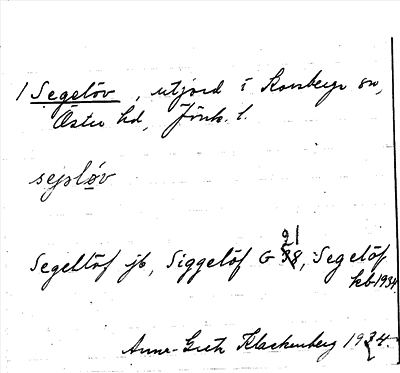 1 Segelöv, utjord i Korsberga sn,
Östra hd, Jönk. l.
sejsløv
Segellöf jb, Siggelöf G 21, Segelöf
kb 1934.
Anna-Greta Klackenberg 1934.